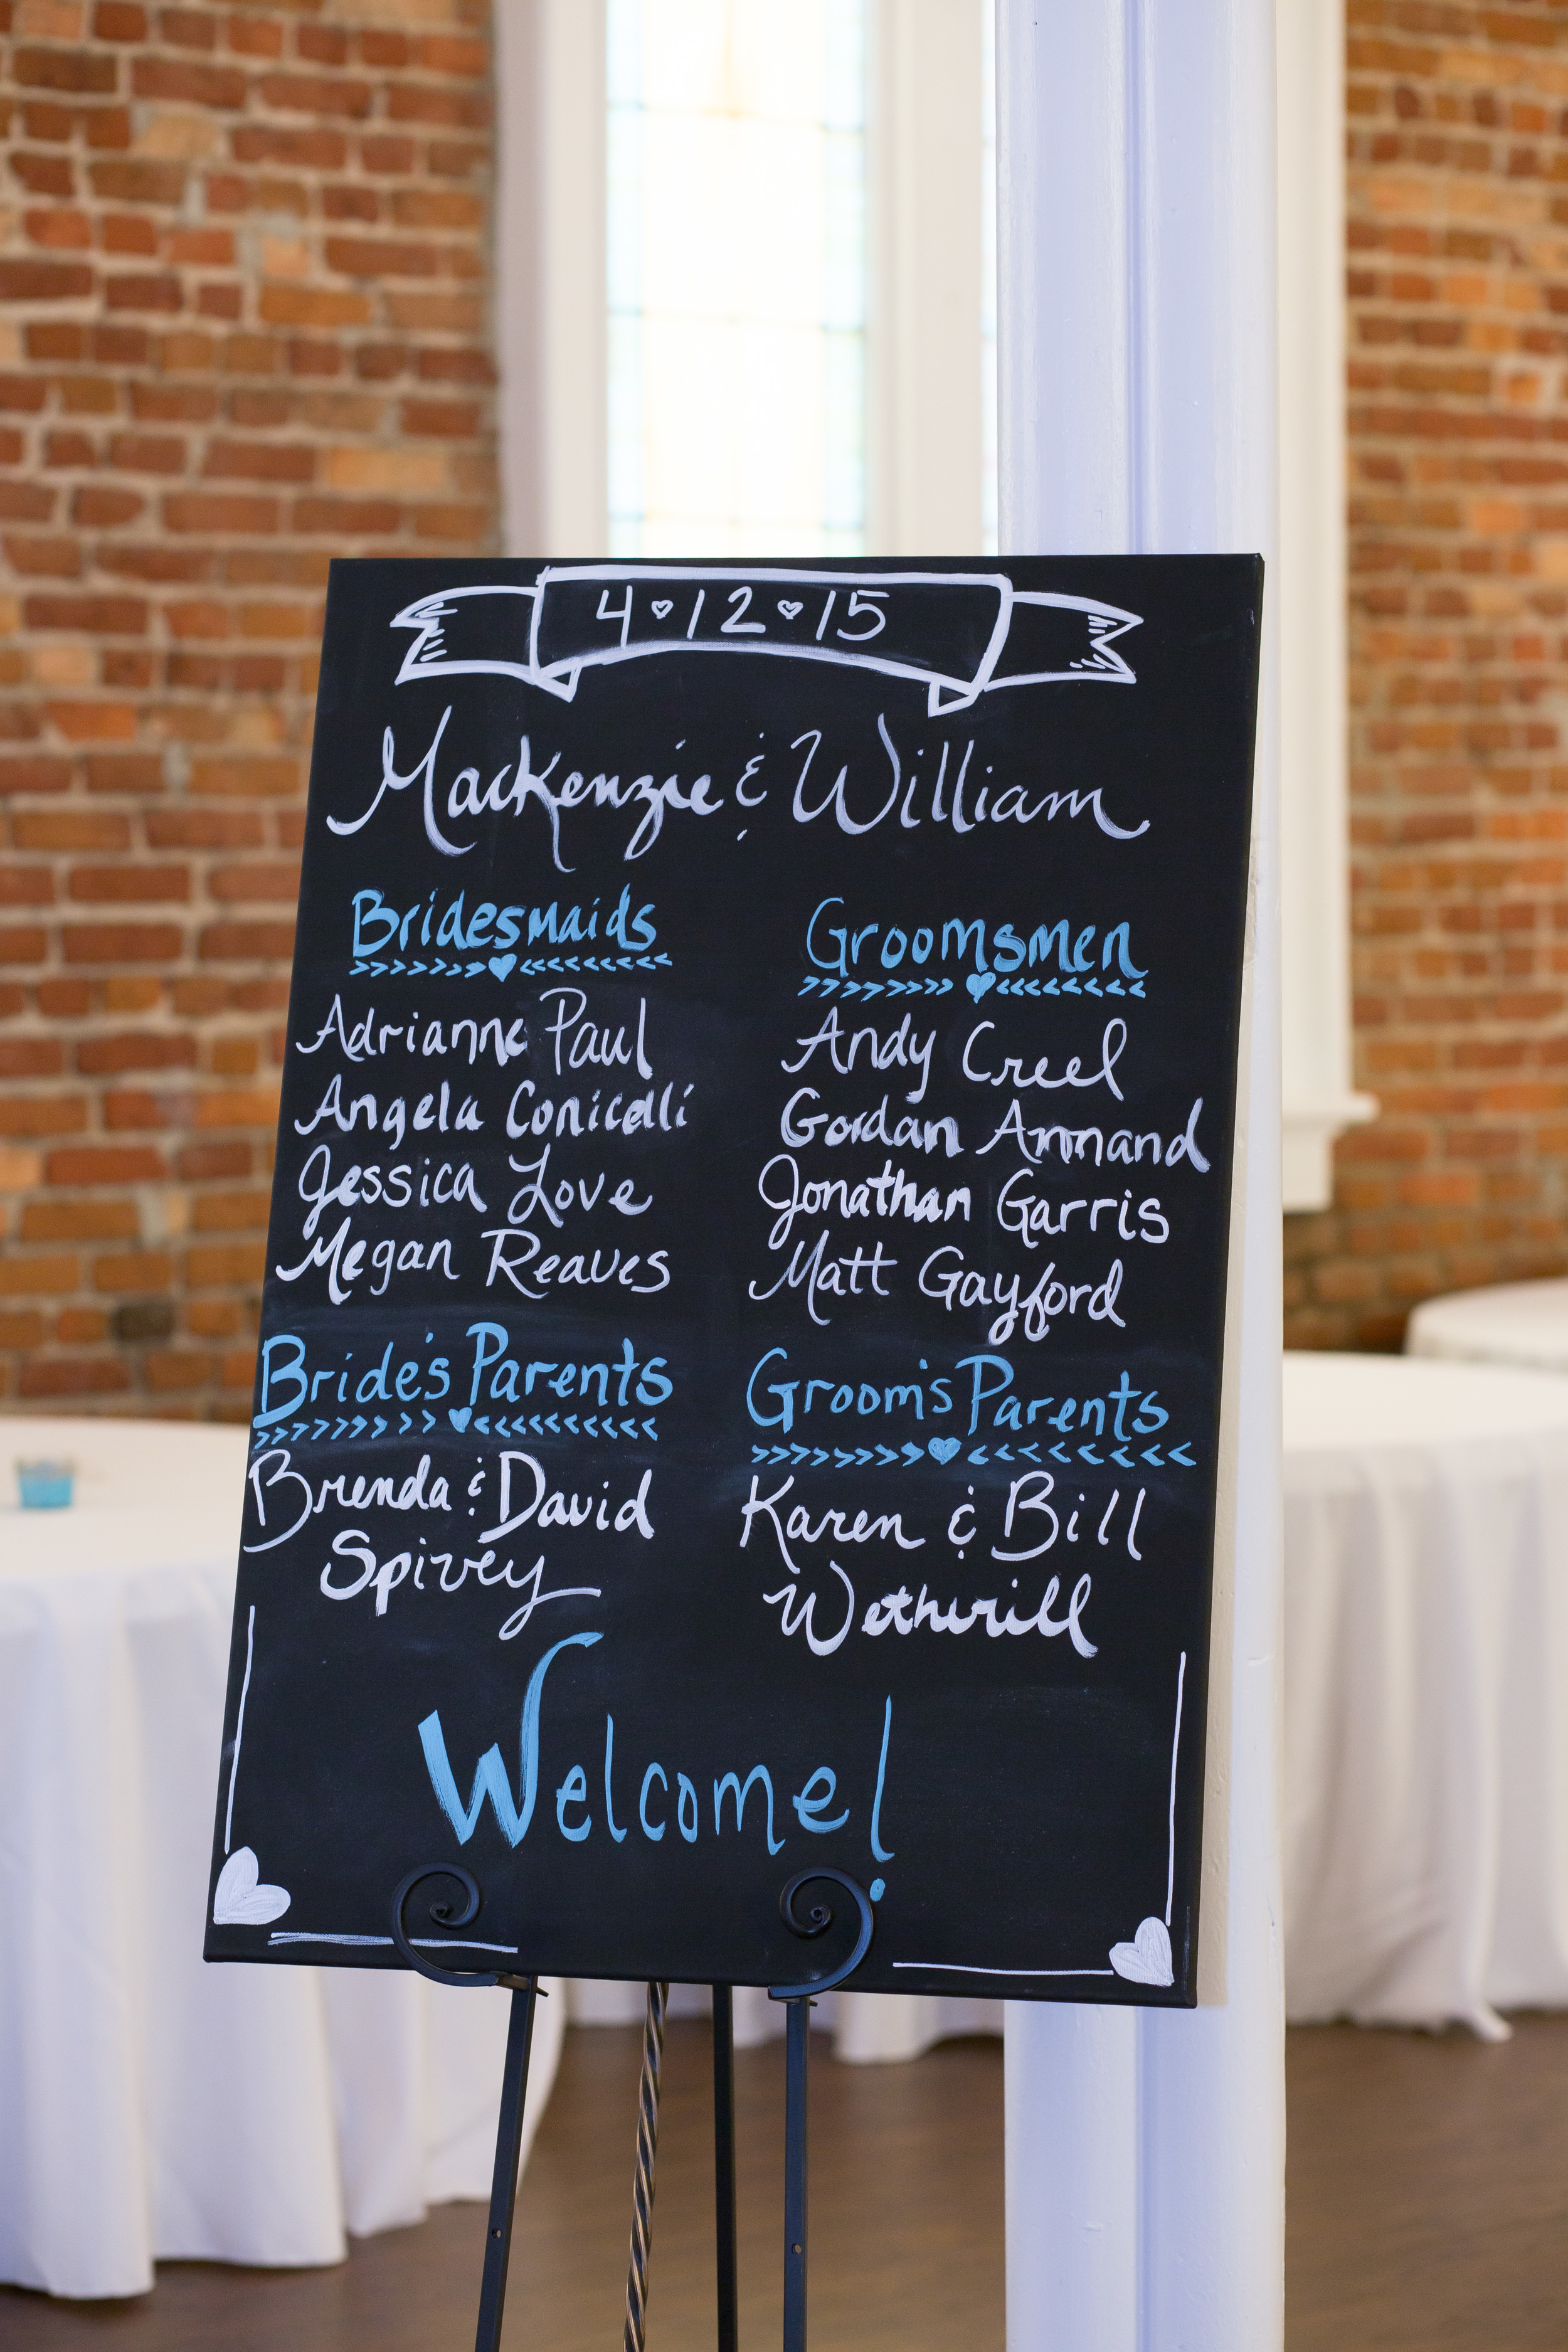 4♡12♡15
Mackenzie & William
Bridesmaids
Adrianne Paul
Angela Conicelli
Jessica Love
Megan Reaves
Groomsmen
Andy Creel
Gordan Annand
Jonathan Garris
Matt Gayford
Bride's Parents
Brenda & David
Spivey
Groom's Parents
Karen & Bill
Wetherill
Welcome!